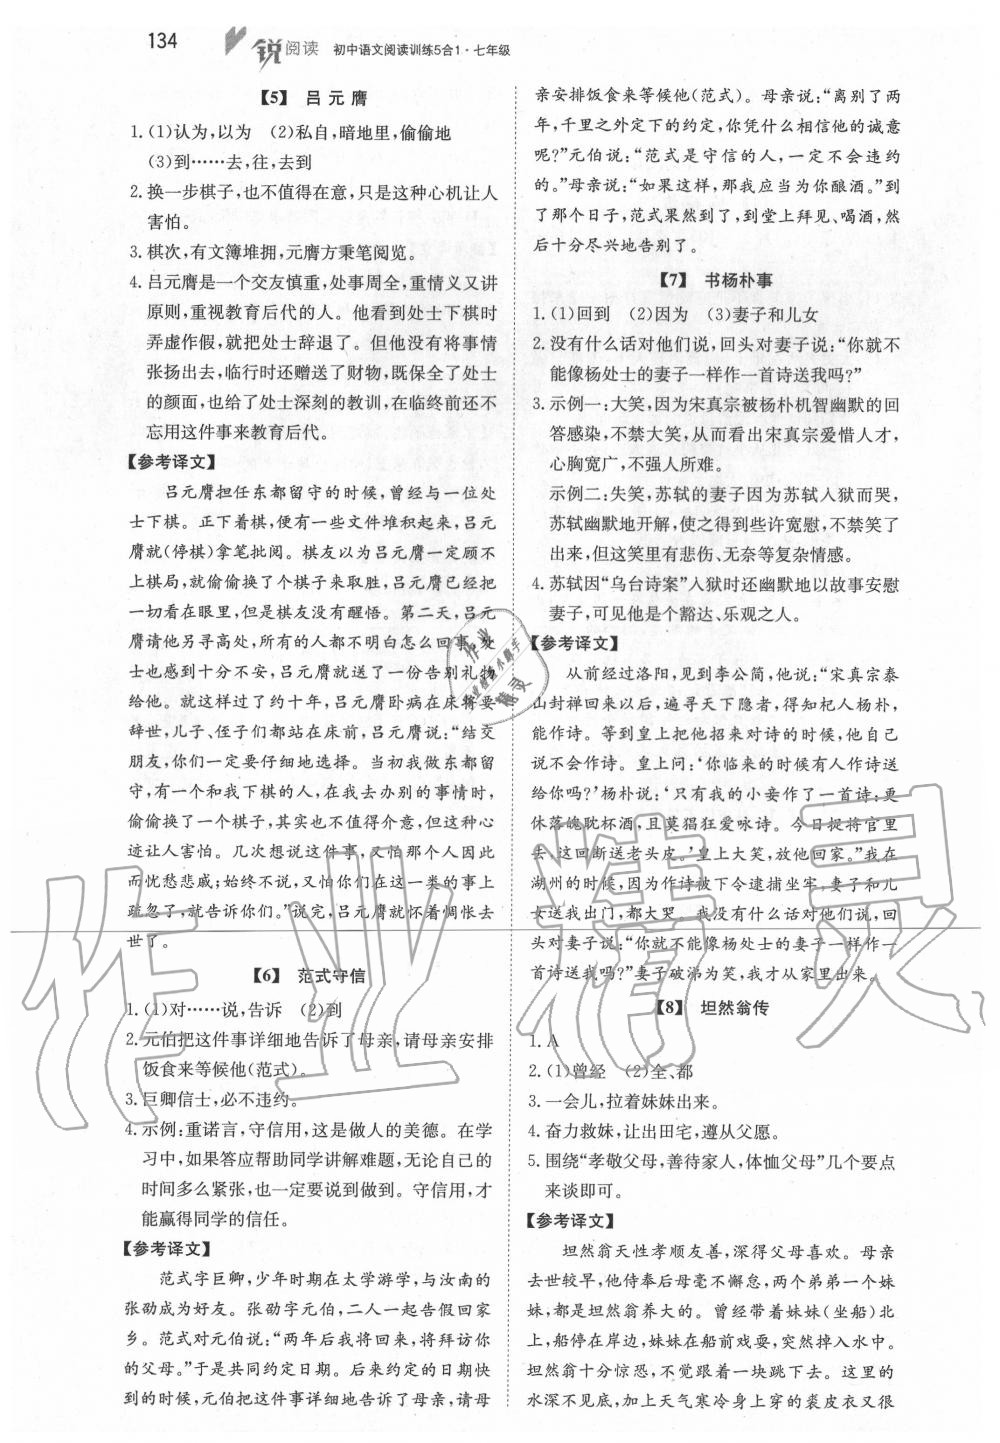 134 锐阅读 初中语文阅读训练5合1·七年级
【5】 吕元膺
1. (1)认为,以为 (2)私自,暗地里,偷偷地
(3)到……去,往,去到
2. 换一步棋子,也不值得在意,只是这种心机让人
害怕。
3. 棋次,有文簿堆拥,元膺方秉笔阅览。
4. 吕元膺是一个交友慎重,处事周全,重情义又讲
原则,重视教育后代的人。他看到处士下棋时
弄虚作假,就把处士辞退了。但他没有将事情
张扬出去,临行时还赠送了财物,既保全了处士
的颜面,也给了处士深刻的教训,在临终前还不
忘用这件事来教育后代。
【参考译文】
吕元膺担任东都留守的时候,曾经与一位处
士下棋。正下着棋,便有一些文件堆积起来,吕元
膺就(停棋)拿笔批阅。棋友以为吕元膺一定顾不
上棋局,就偷偷换了个棋子来取胜,吕元膺已经把
一切看在眼里,但是棋友没有醒悟。第二天,吕元
膺请他另寻高处,所有的人都不明白怎么回事,处
士也感到十分不安,吕元膺送走时还告别礼物
给他。就这样过了约十年,吕元膺卧病在床将要
辞世,儿子、侄子们都站在床前,吕元膺说:“结交
朋友,你们一定要仔细地选择。当初我做东都留
守,有一个和我下棋的人,在我去办别的事情时,
偷偷换了一个棋子,其实也不值得介意,但这种心
迹让人害怕。几次想说这件事,又怕那个人因此
而忧愁悲戚;始终不说,又怕你们在这一类的事上
疏忽了,就告诉你们。”说完,吕元膺就怀着惆怅去
世了。
【6】 范式守信
1. (1)对……说,告诉 (2)到
2. 元伯把这件事详细地告诉了母亲,请母亲安排
饭食来等候他(范式)。
3. 巨卿信士,必不违约。
4. 示例:重诺言,守信用,这是做人的美德。在学
习中,如果答应帮助同学讲解难题,无论自己的
时间多么紧张,也一定要说到做到。守信用,才
能赢得同学的信任。
【参考译文】
范式字巨卿,少年时期在太学游学,与汝南的
张劭成为好友。张劭字元伯,二人一起告假回家
乡。范式对元伯说:“两年后我将回来,将拜访你
的父母。”于是共同约定日期。后来约定的日期快
到的时候,元伯把这件事详细地告诉了母亲,请母
亲安排饭食来等候他(范式)。母亲说:“离别了两
年,千里之外定下的约定,你凭什么相信他的诚意
呢?”元伯说:“范式是守信的人,一定不会违约
的。”母亲说:“如果这样,那我应当为你酿酒。”到
了那个日子,范式果然到了,到堂上拜见、喝酒,然
后十分尽兴地告别了。
【7】 书杨朴事
1. (1)回到 (2)因为 (3)妻子和儿女
2. 没有什么话对他们说,回头对妻子说:“你就不
能像杨处士的妻子一样作一首诗送我吗?”
3. 示例一:大笑,因为宋真宗被杨朴机智幽默的回
答感染,不禁大笑,从而看出宋真宗爱惜人才,
心胸宽广,不强人所难。
示例二:失笑,苏轼的妻子因为苏轼入狱而哭,
苏轼幽默地开解,使之得到些许宽慰,不禁笑了
出来,但这笑里有悲伤、无奈等复杂情感。
4. 苏轼因“乌台诗案”入狱时还幽默地以故事安慰
妻子,可见他是个豁达、乐观之人。
【参考译文】
从前经过洛阳,见到李公简,他说:“宋真宗泰
山封禅回来以后,遍寻天下隐者,得知杞人杨朴,
能作诗。等到皇上把他招来对诗的时候,他自己
说不会作诗。皇上问:‘你临来的时候有人作诗送
给你吗?’杨朴说:‘只有我的小妾作了一首诗:更
休落魄耽杯酒,且莫猖狂爱咏诗。今日捉将官里
去,这回断送老头皮。’皇上大笑,放他回家。”我在
湖州的时候,因为作诗被下令逮捕坐牢,妻子和儿
女送我出门,都大哭。我没有什么话对他们说,回
头对妻子说:“你就不能像杨处士的妻子一样作一
首诗送我吗?”妻子破涕为笑,我才从家里出来。
【8】 坦然翁传
1. A
2. (1)曾经 (2)全、都
3. 一会儿,拉着妹妹出来。
4. 奋力救妹,让出田宅,遵从父愿。
5. 围绕“孝敬父母,善待家人,体恤父母”几个要点
来谈即可。
【参考译文】
坦然翁天性孝顺友善,深得父母喜欢。母亲
去世较早,他侍奉后母毫不懈怠,两个弟弟一个妹
妹,都是坦然翁养大的。曾经带着妹妹(坐船)北
上,船停在岸边,妹妹在船前嬉耍,突然掉入水中。
坦然翁十分惊恐,不觉跟着一块跳进水里,这里的
水深不见底,加上天气寒冷身上穿的裘皮衣又很
作业精灵